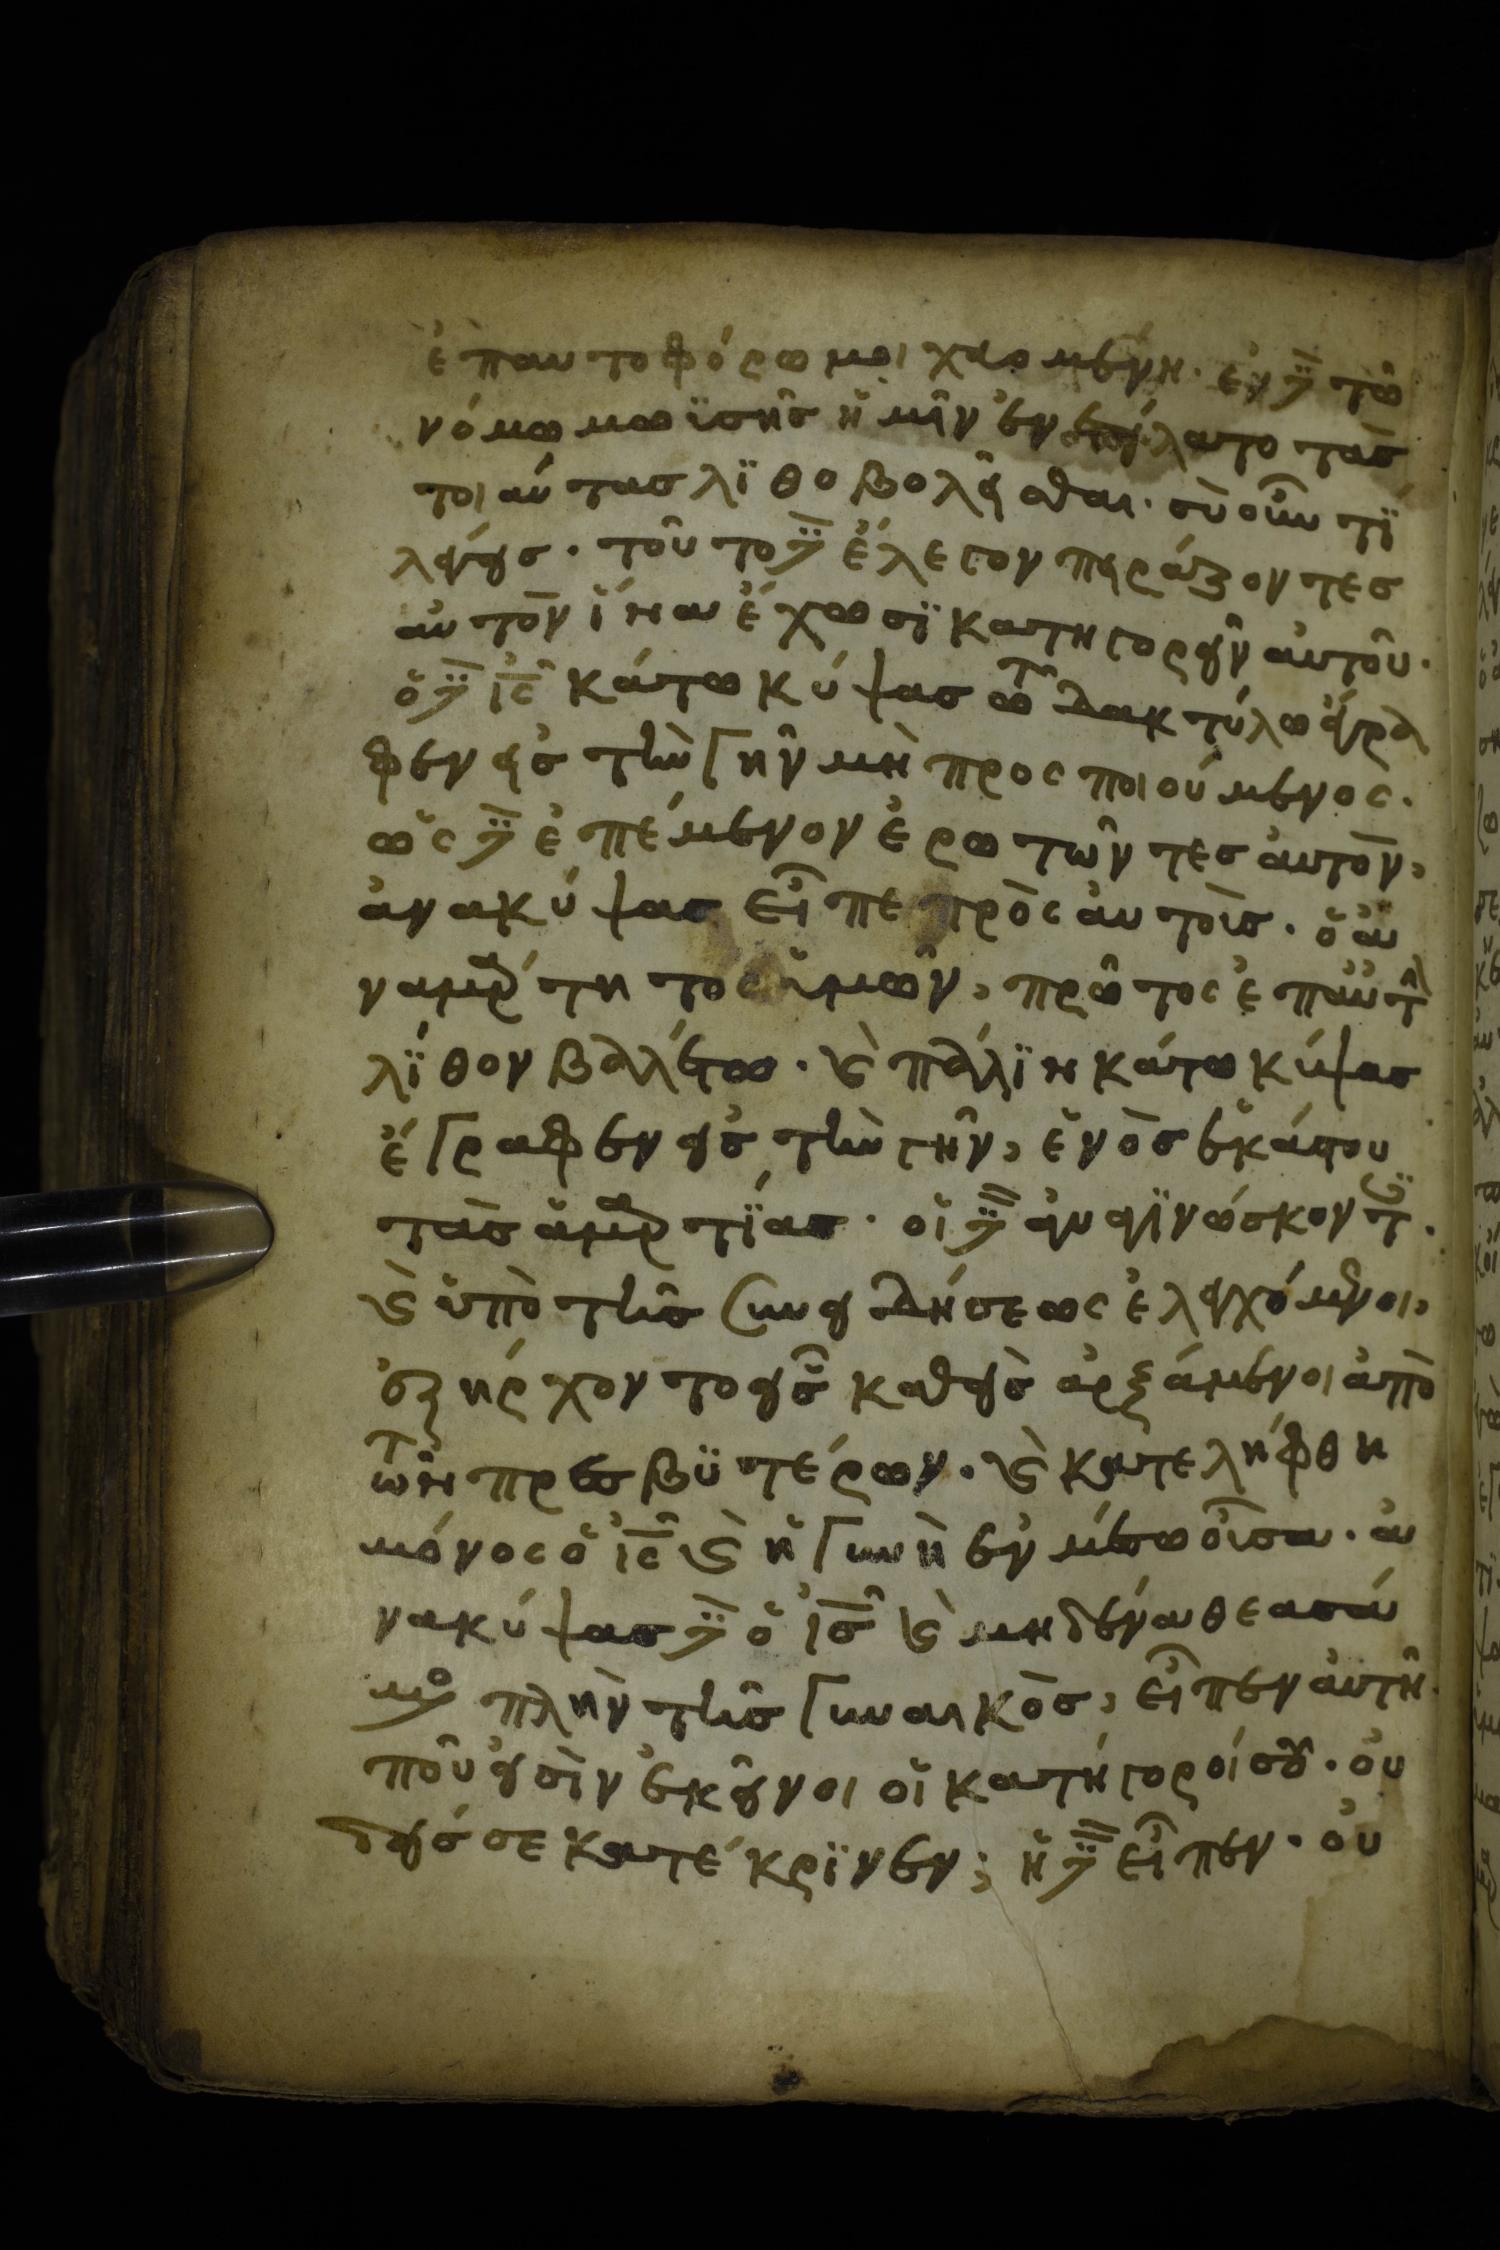 ἐπαυτοφόρω μοιχαομένη. ἐν δὲ τῶ
νόμω μωϊσῆς ἡμῖν ἐνετείλατο τὰς
τοιαύτας λϊθοβολεῖσθαι. σὺ οὖν τΐ
λέγεις. τοῦτο δὲ ἔλεγον πειράζοντες
αὐτὸν ἵνα ἔχωσϊ κατηγορεῖν αὐτοῦ.
ὁ δὲ ἰς κάτω κύψας τῶ δακτύλω ἔγρα
φεν εἰς τὴν γῆν μὴ προςποιούμενος.
ὡς δὲ ἐπέμενον ἐρωτῶντες αὐτὸν,
ἀνακύψας εἶπε πρὸς αὐτοὺς. ὁ ἀ
ναμάρτητος ὑμῶν, πρῶτος ἐπ' αὐτὴ
λΐθον βαλέτω. καὶ πάλϊν κάτω κύψας
ἔγραφεν εἰς τὴν γῆν, ἑνὸς ἑκάστου
τὰς ἁμαρτΐας. οἱ δὲ ἀναγϊνώσκοντ
καὶ ὑπὸ τῆς συνειδήσεως ἐλεγχόμενοι,
ἐξήρχοντο εἷς καθεὶς ἀρξάμενοι ἀπὸ
τῶν πρεσβϋτέρων. καὶ κατελήφθη
μόνος ὁ ἰς καὶ ἡ γυνὴ ἐν μέσω οὖσα. ἀ
νακύψας δὲ ὁ ἰς καὶ μηδένα θεασά
μενος πλὴν τῆς γυναικὸς, εἶπεν αὐτῆ.
ποῦ εἰσὶν ἐκεῖνοι οἱ κατήγοροί σου. οὐ
δείς σε κατέκρϊνεν; ἡ δὲ εἶπεν. οὐ